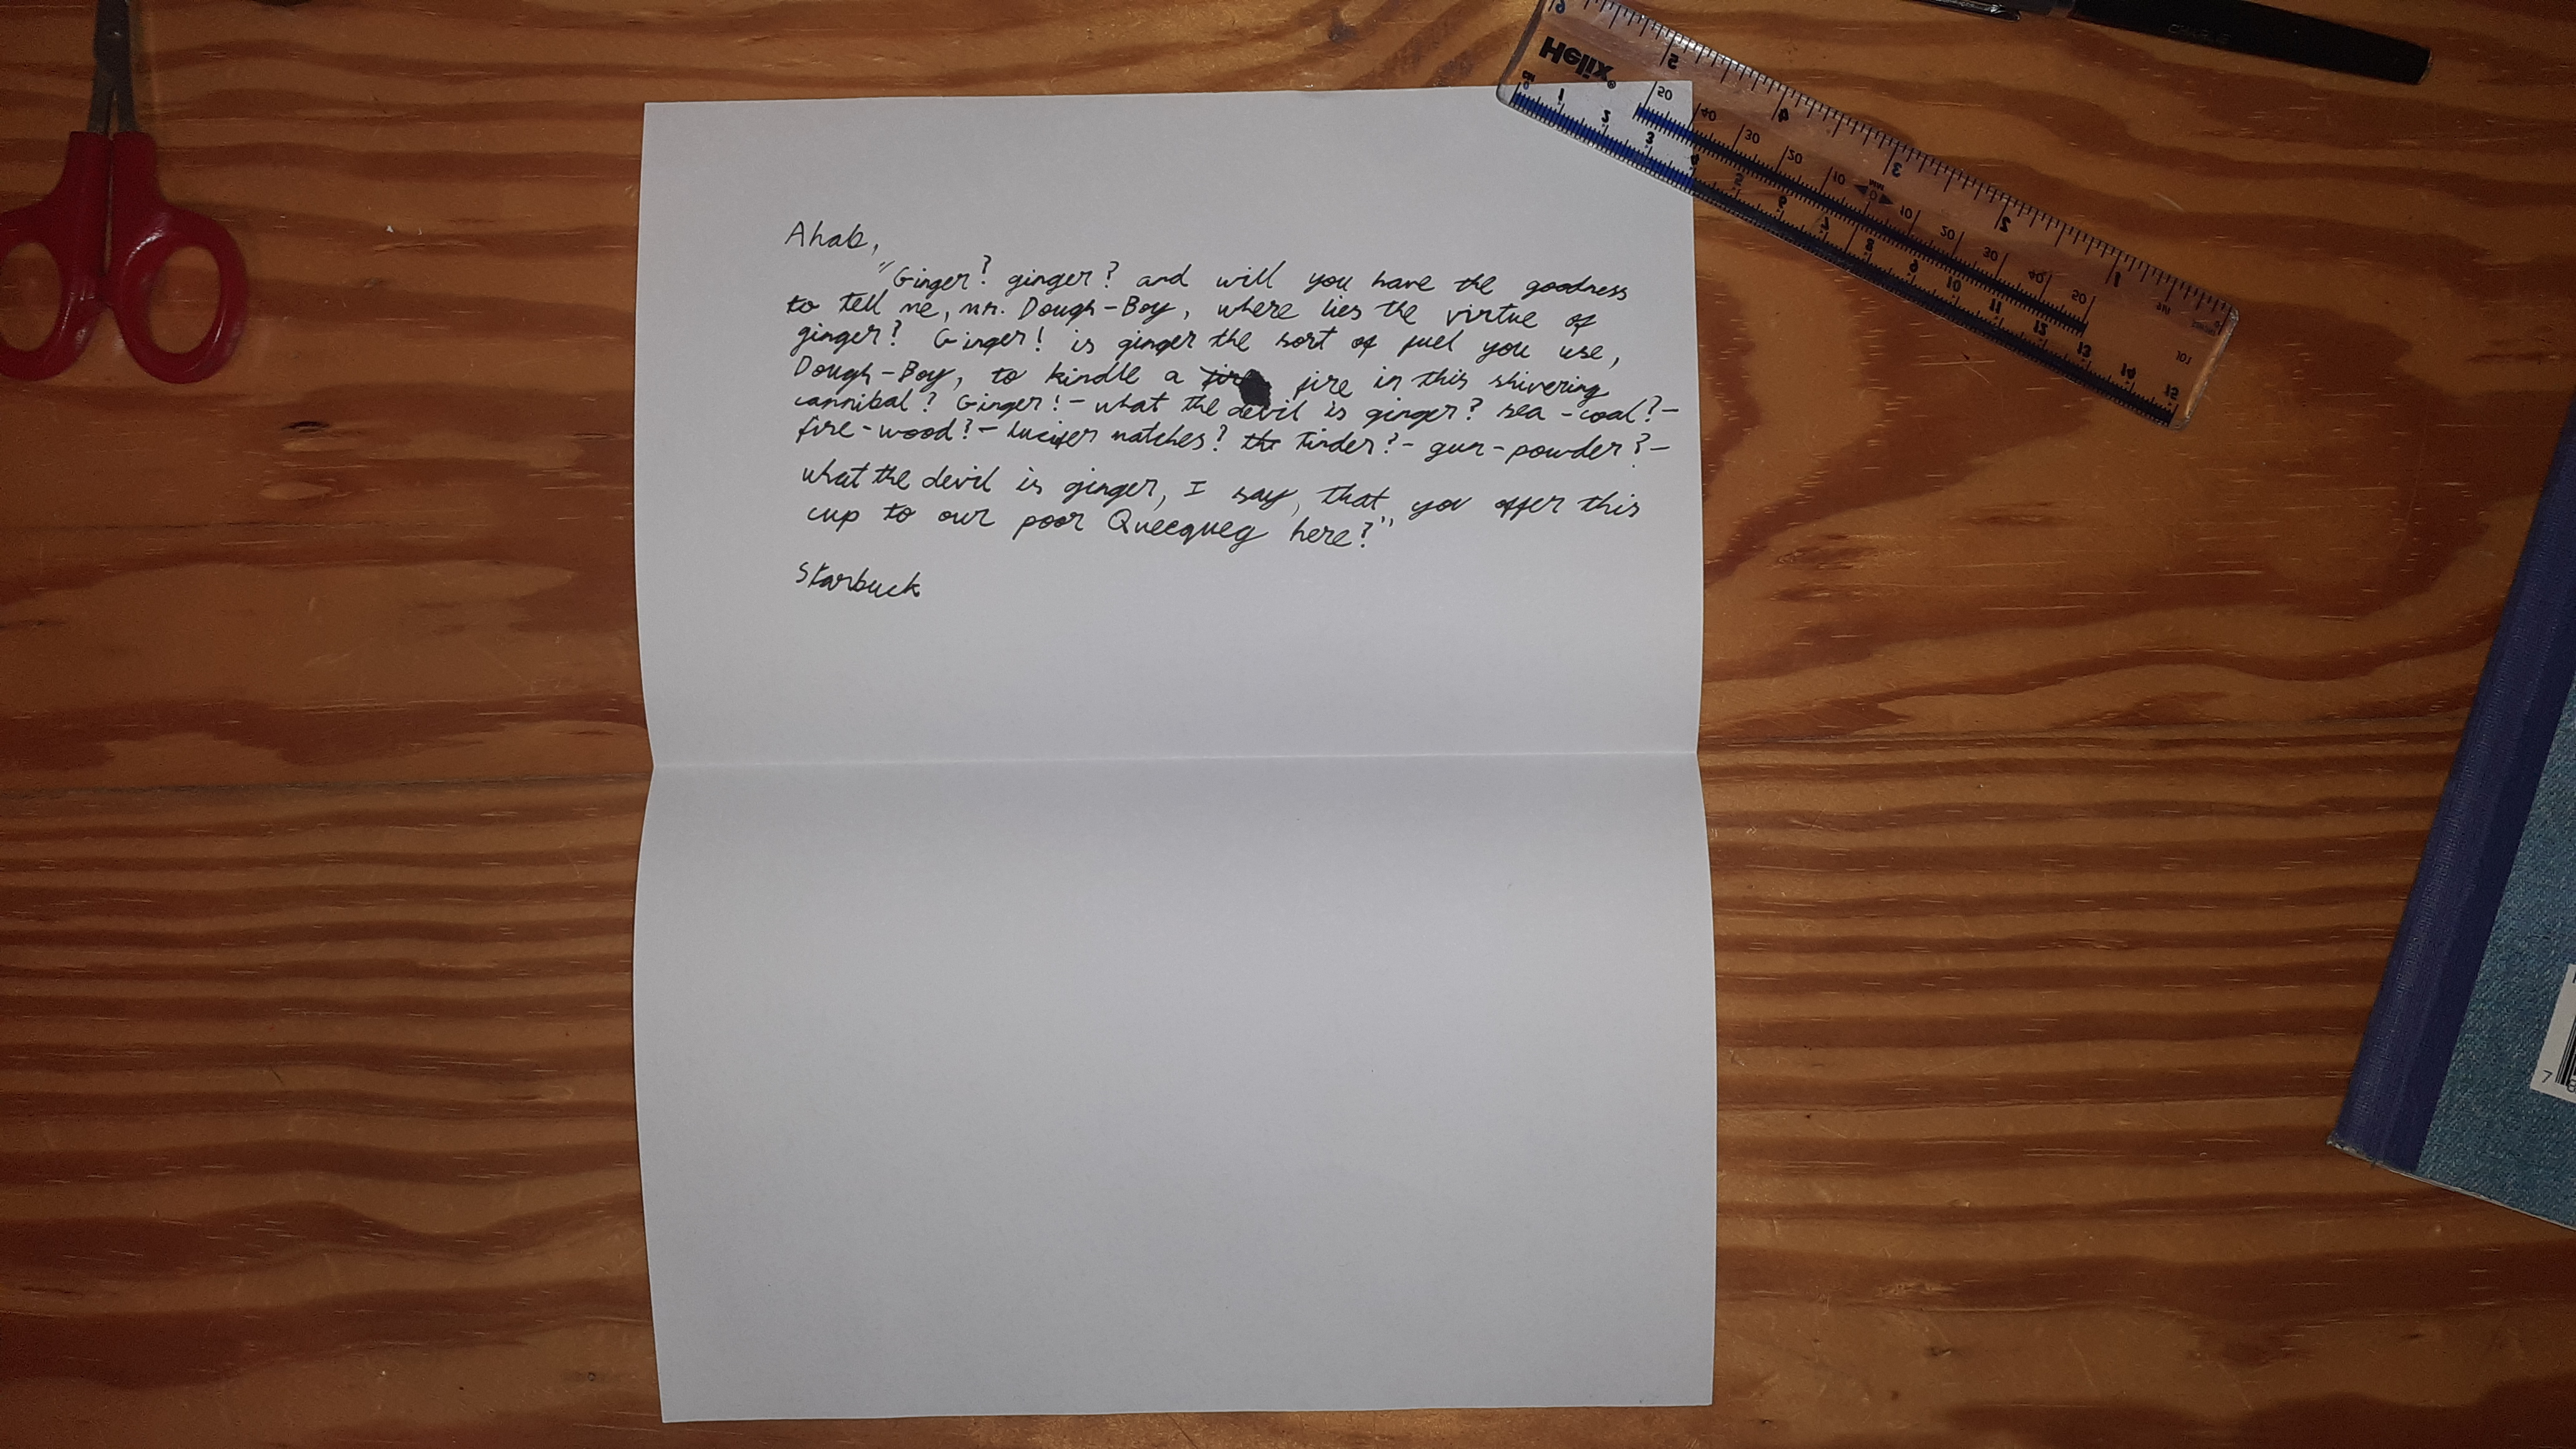 Ahab,
"Ginger? ginger? and will you have the goodness
to tell me, mr. Dough-Boy, where lies the virtue of
ginger? Ginger! is ginger the sort of fuel you use,
Dough-Boy, to kindle a fire in this shivering
cannibal? Ginger!- what the devil is ginger? sea-coal?-
fire-wood?- lucifer matches? tinder?- gun-powder?-
what the devil is ginger, I say, that you offer this
cup to our poor Queequeg here?"
Starbuck
Helix®
6 5 4 3 2 1
50 40 30 20 10 0 10 20 30 40 50
1 2 3 4 5 6 7 8 9 10 11 12 13 14 15
7